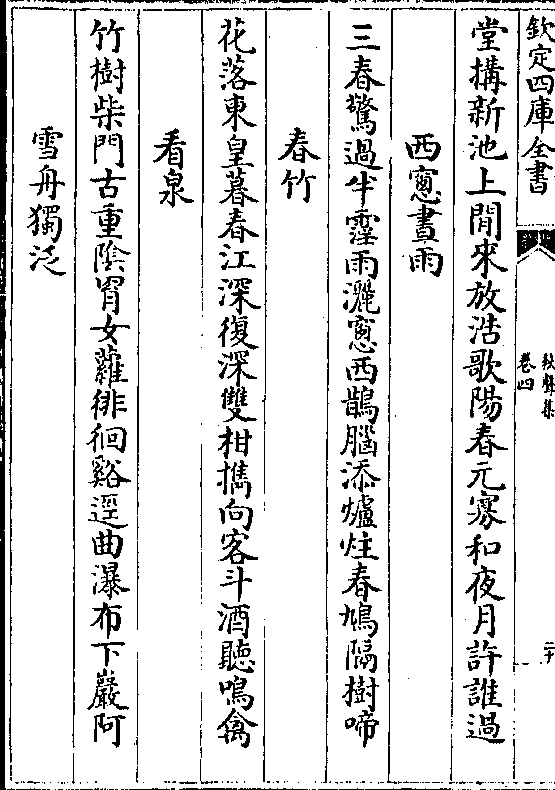 欽定四庫全書
秋聲集
卷四
二十
堂搆新池上閒來放浩歌陽春元寡和夜月許誰過
西窻晝雨
三春驚過半霪雨灑窻西鵲腦添爐炷春鳩隔樹啼
春竹
花落東皇暮春江深復深雙柑攜向客斗酒聽鳴禽
看泉
竹樹柴門古重陰罥女蘿徘徊谿逕曲瀑布下巖阿
雪舟獨泛